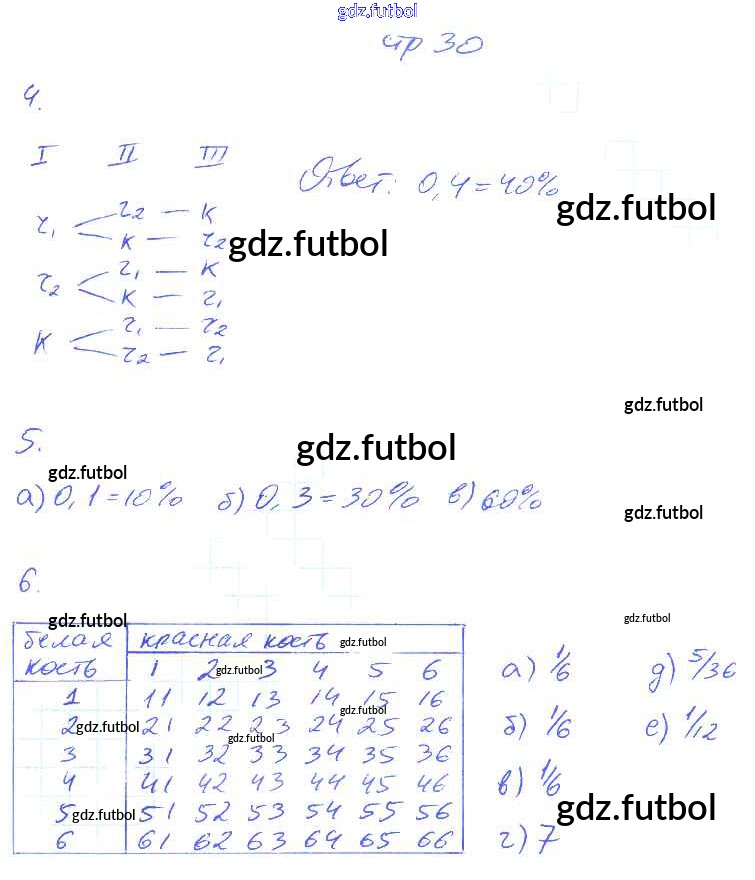 gdz.futbol
стр 30
4.
I II III
Ответ: 0,4 = 40%
gdz.futbol
г₁ < г₂ — К
К — г₂
gdz.futbol
г₂ < г₁ — К
К — г₁
К < г₁ — г₂
г₂ — г₁
gdz.futbol
5.
gdz.futbol
gdz.futbol
а) 0,1 = 10% б) 0,3 = 30% в) 60%
gdz.futbol
6.
gdz.futbol
gdz.futbol
белая красная кость gdz.futbol
кость 1 2 gdz.futbol 3 4 5 6
1 11 12 13 14 15 16
gdz.futbol
2 gdz.futbol 21 22 23 24 25 26
gdz.futbol
3 31 32 33 34 35 36
4 41 42 43 44 45 46
5 gdz.futbol 51 52 53 54 55 56
6 61 62 63 64 65 66
а) 1/6 д) 5/36
б) 1/6 е) 1/12
в) 1/6
gdz.futbol
г) 7